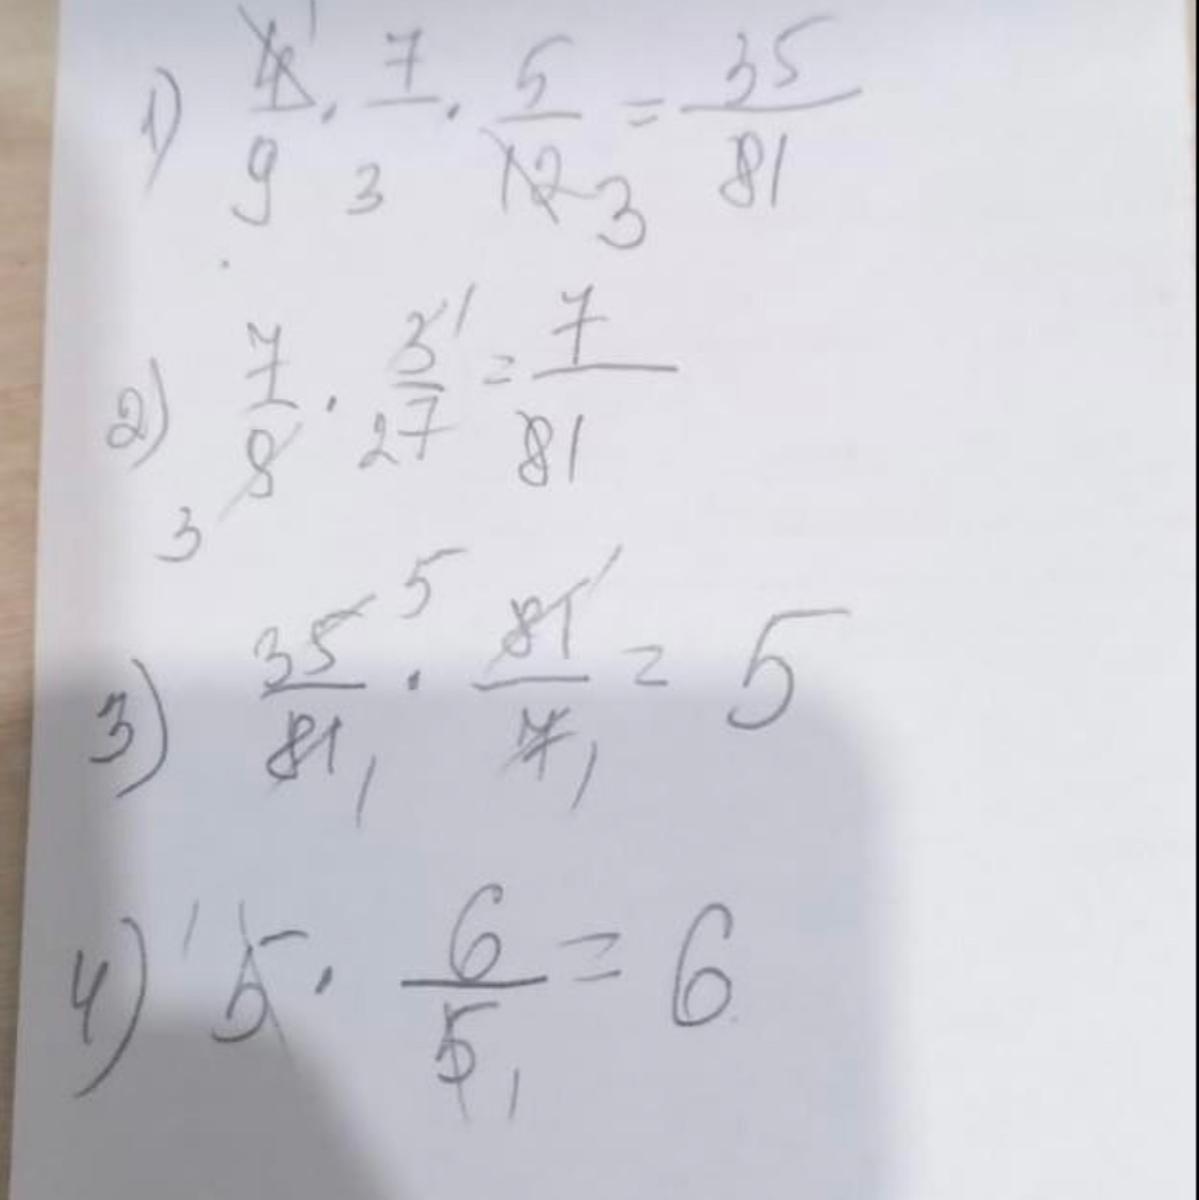 1) 4/9 · 7/3 · 5/12 = 35/81
1 3
2) 7/9 · 3/27 = 7/81
1 3
3) 35/81 · 81/7 = 5
5 1 1 1
4) 5 · 6/5 = 6
1 1